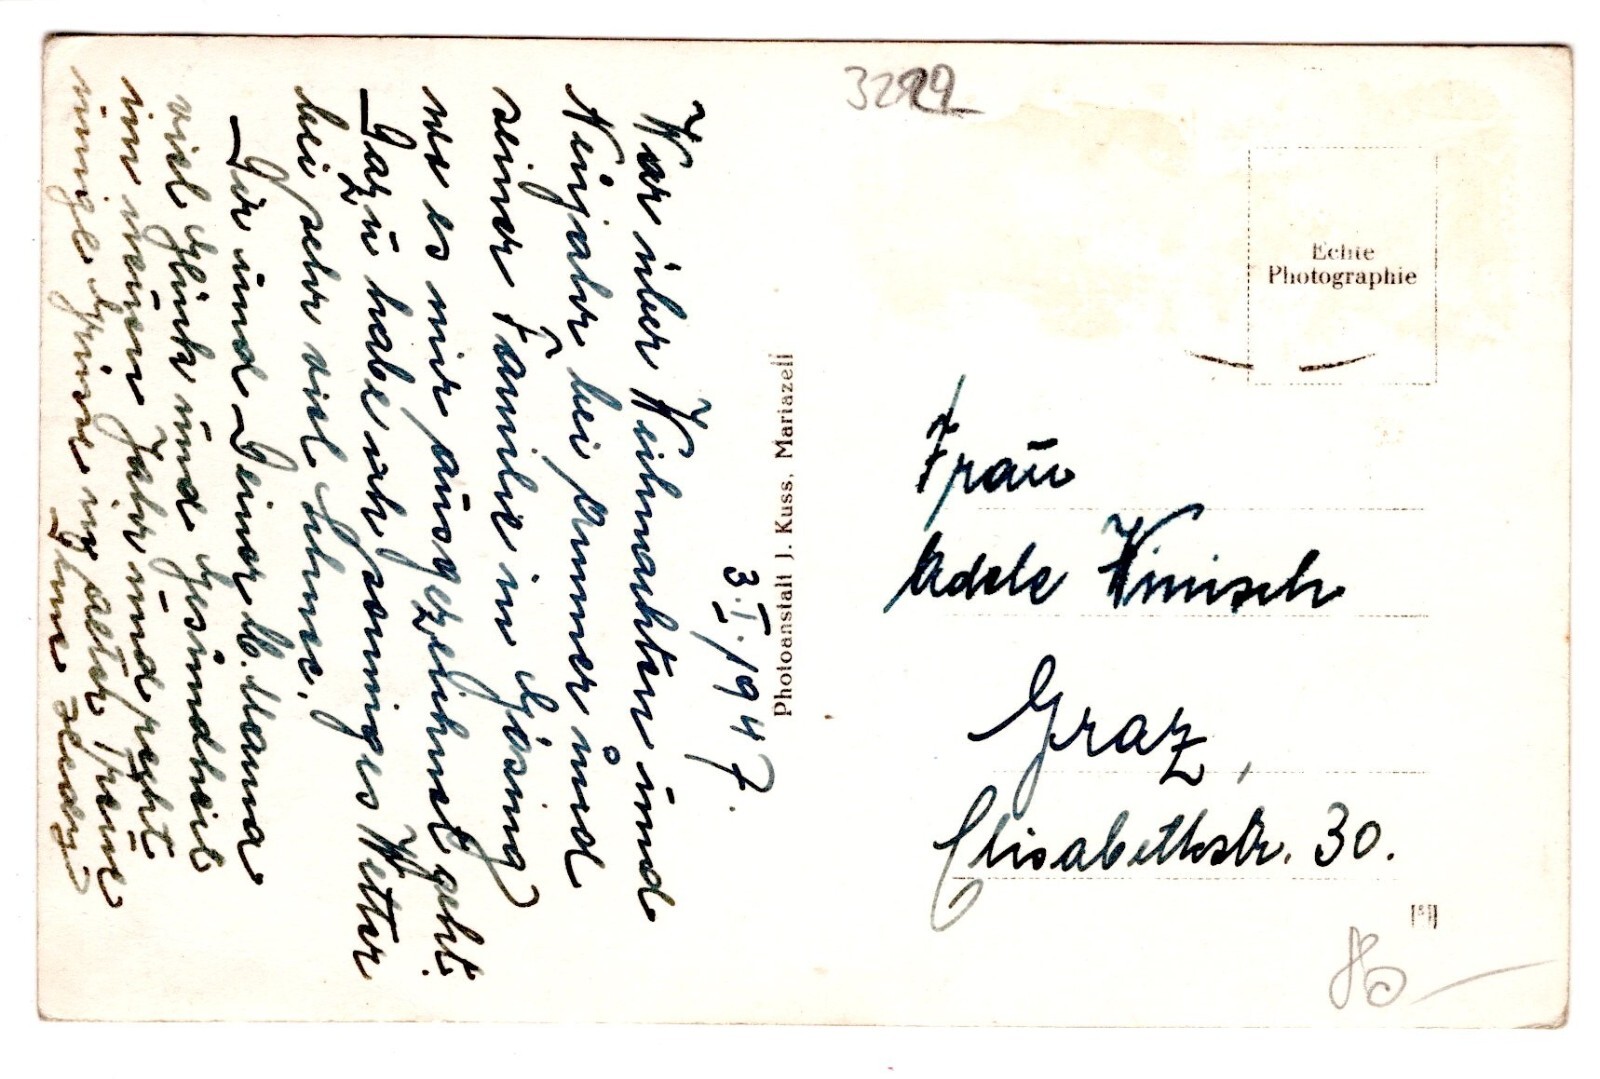 3.I.1947.
War über Weihnachten und
Neujahr bei Ammer und
seiner Familie in Gösing
wo es mir ausgezeichnet geht.
Dazu habe ich sonniges Wetter
bei sehr viel Schnee.
Dir und Deiner lb. Mama
viel Glück und Gesundheit
im neuen Jahr und recht
innige Grüsse in alter Treue
Photoanstalt J. Kuss, Mariazell
3229
Echte
Photographie
Frau
Adele Winisch
Graz,
Elisabethstr. 30.